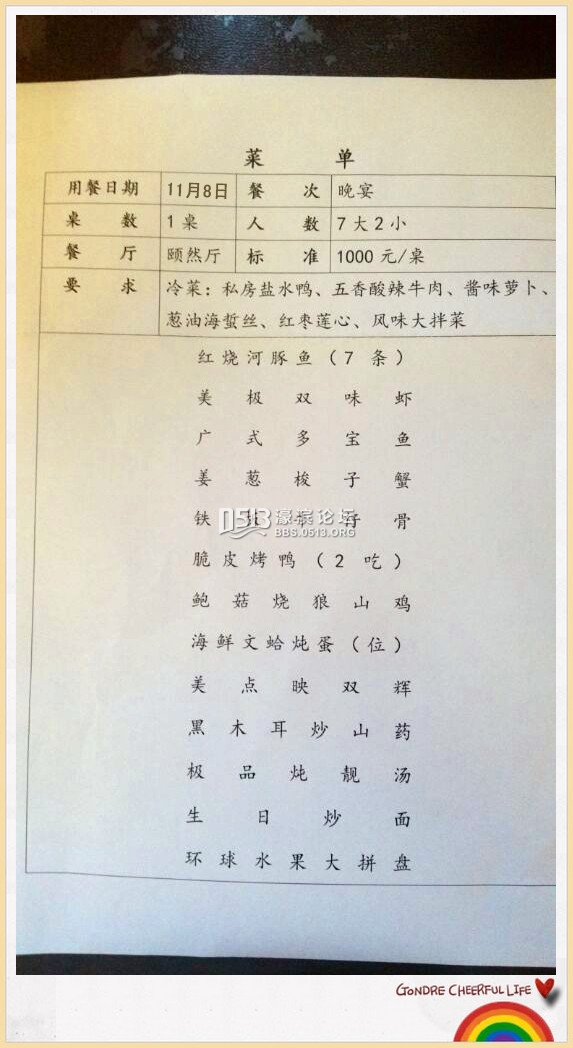 菜 单
用餐日期 11月8日 餐 次 晚宴
桌 数 1桌 人 数 7大2小
餐 厅 颐然厅 标 准 1000元/桌
要 求 冷菜：私房盐水鸭、五香酸辣牛肉、酱味萝卜、
葱油海蜇丝、红枣莲心、风味大拌菜
红烧河豚鱼（7条）
美极双味虾
广式多宝鱼
姜葱梭子蟹
铁 仔骨
0513 濠滨论坛
BBS.0513.ORG
脆皮烤鸭（2吃）
鲍菇烧狼山鸡
海鲜文蛤炖蛋（位）
美点映双辉
黑木耳炒山药
极品炖靓汤
生日炒面
环球水果大拼盘
GONDRE CHEERFUL LIFE